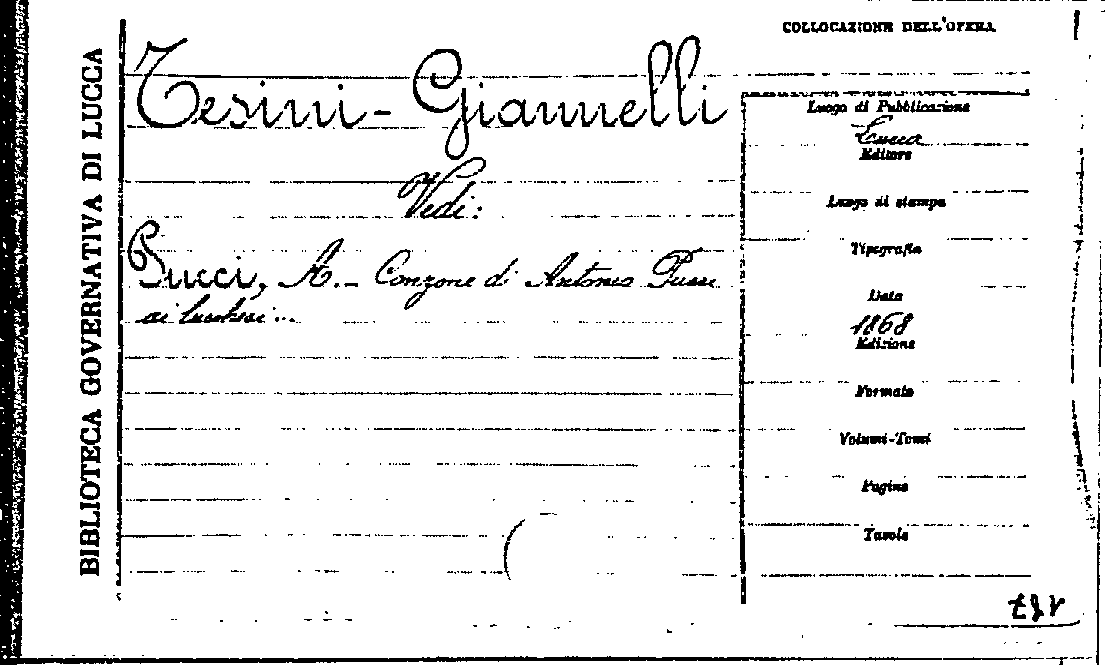 COLLOCAZIONE DELL'OPERA
BIBLIOTECA GOVERNATIVA DI LUCCA
Tesini-Giannelli
Vedi:
Pucci, A. - Canzone di Antonio Pucci
ai lucchesi...
Luogo di Pubblicazione
Lucca
Editore
Luogo di stampa
Tipografia
Data
1868
Edizione
Formato
Volumi-Tomi
Pagine
Tavole